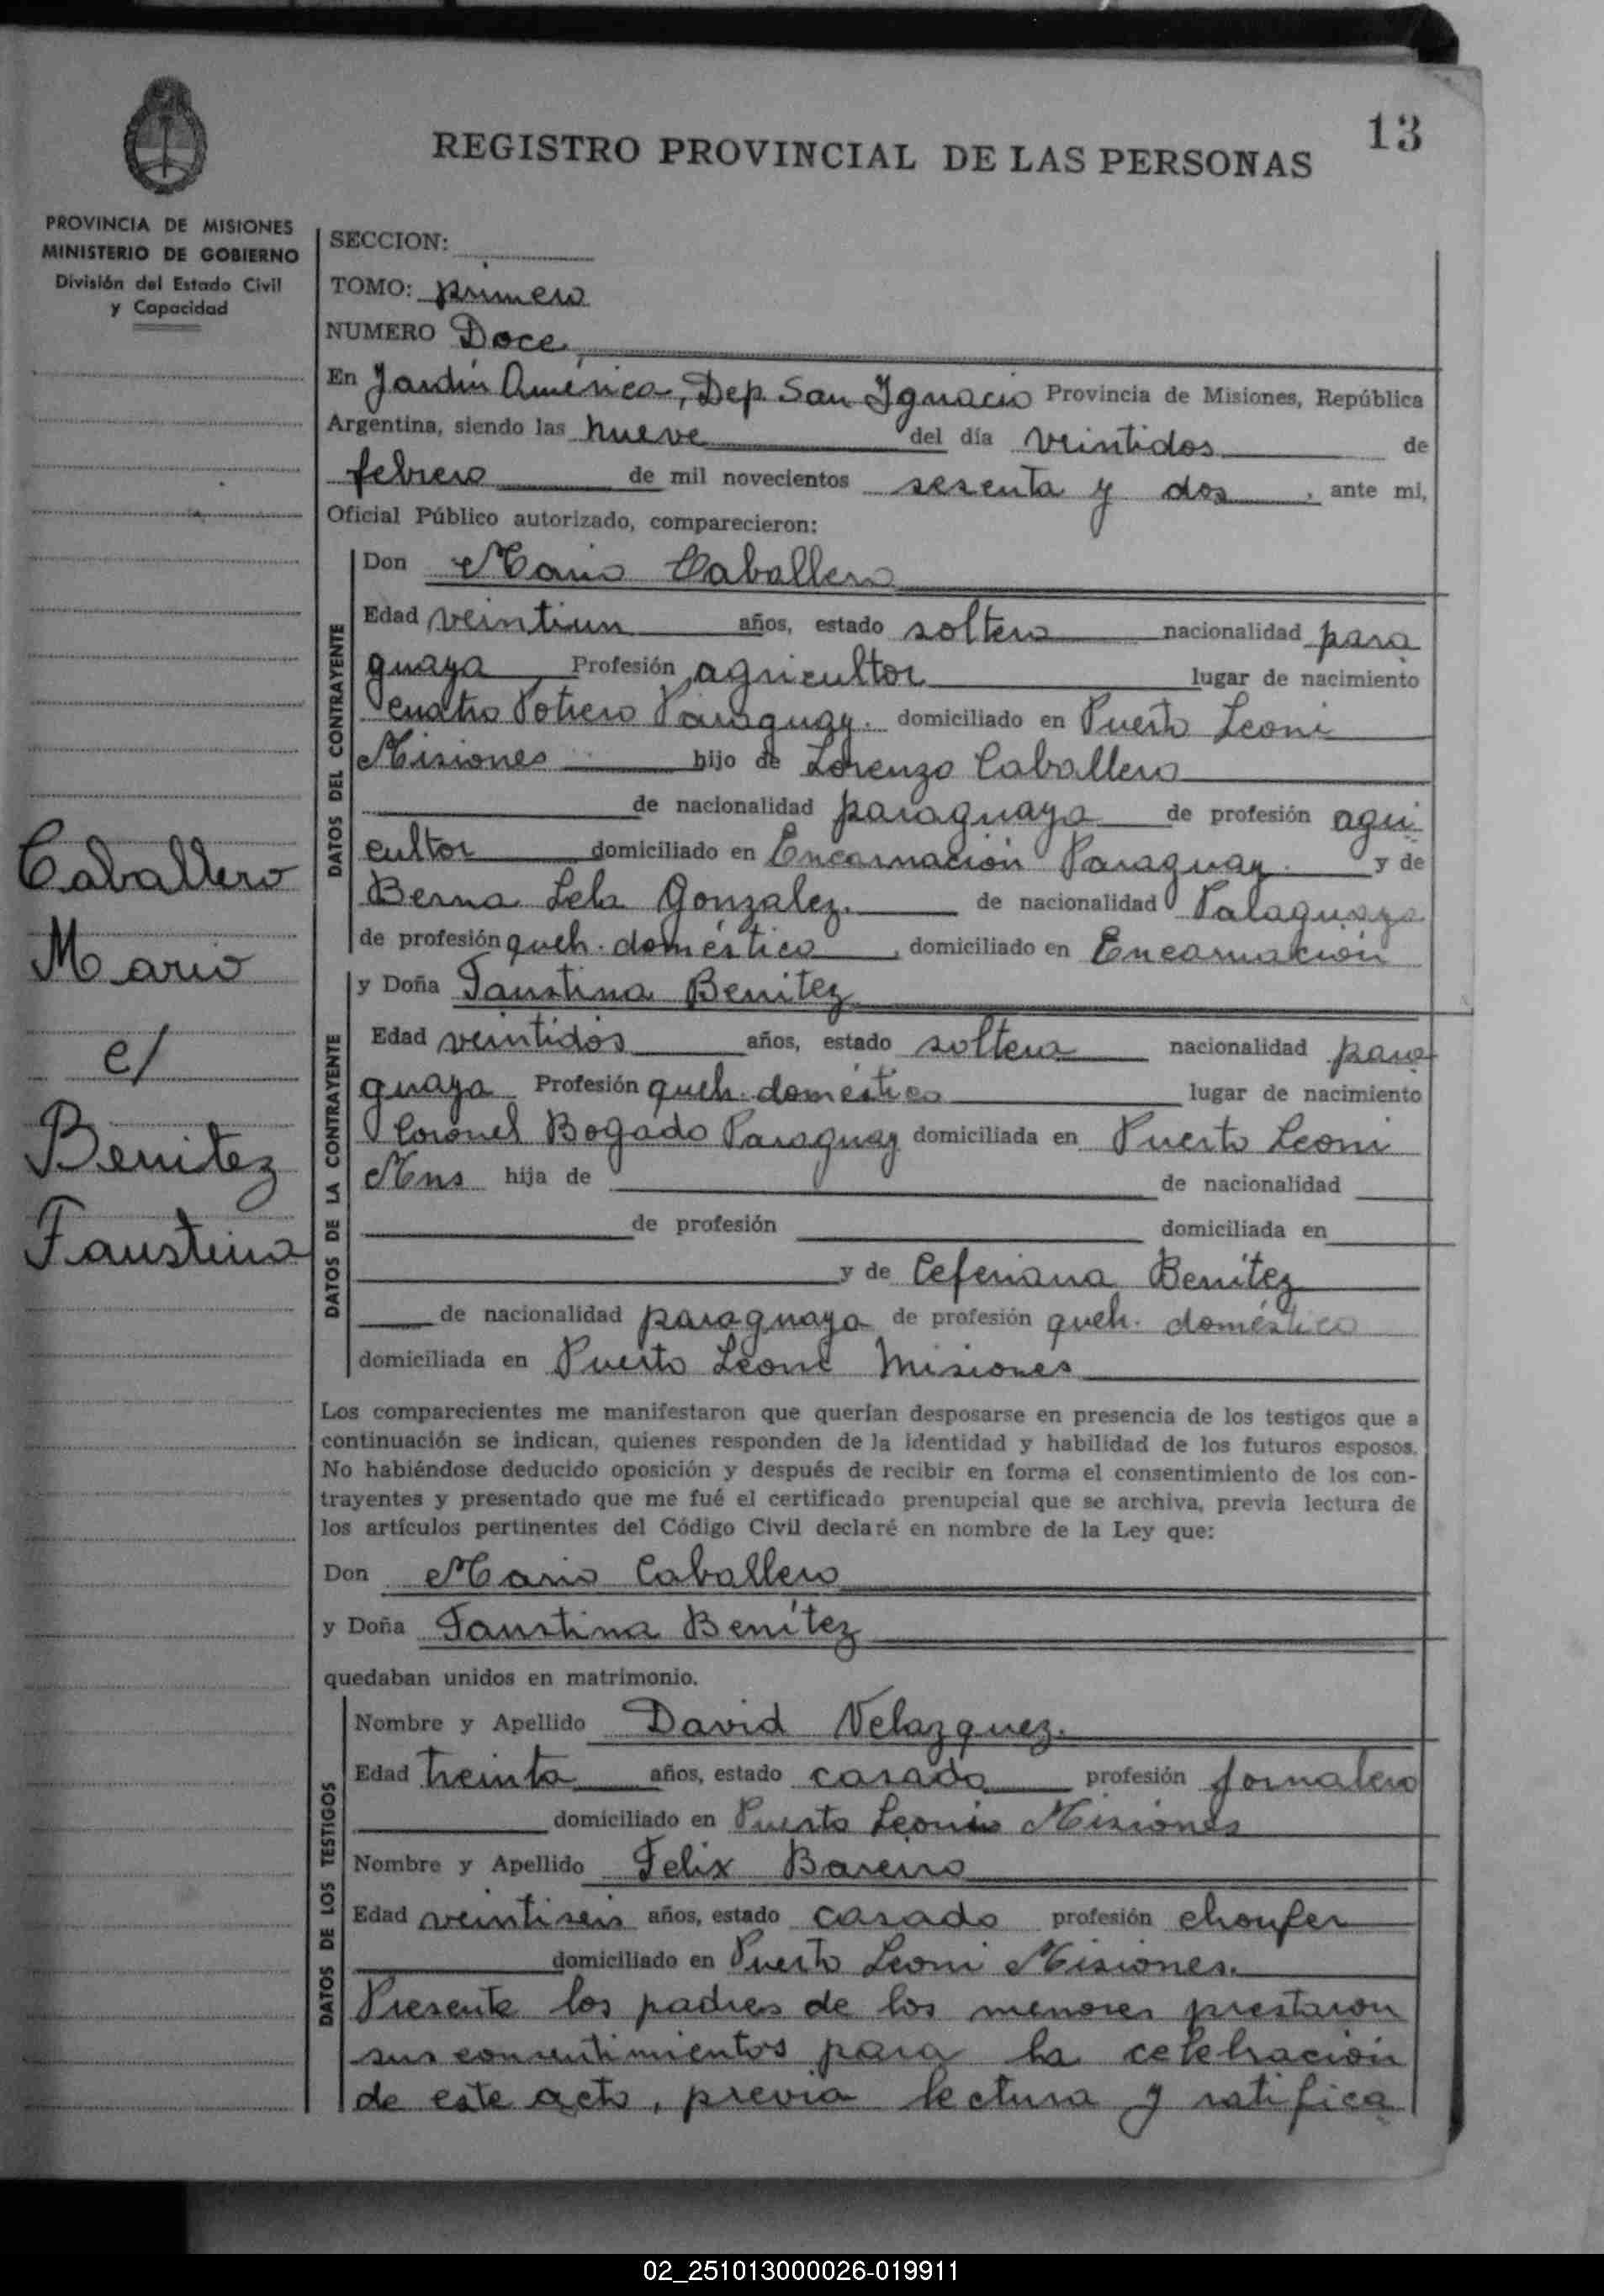 13
REGISTRO PROVINCIAL DE LAS PERSONAS
PROVINCIA DE MISIONES
MINISTERIO DE GOBIERNO
División del Estado Civil
y Capacidad
Caballero
Mario
c/
Benitez
Faustina
SECCION:
TOMO: primero
NUMERO Doce
En Jardín América, Dep. San Ignacio Provincia de Misiones, República
Argentina, siendo las nueve del día veintidos de
febrero de mil novecientos sesenta y dos, ante mi,
Oficial Público autorizado, comparecieron:
DATOS DEL CONTRAYENTE
Don Mario Caballero
Edad veintiun años, estado soltero nacionalidad para
guaya Profesión agricultor lugar de nacimiento
cuatro Potrero Paraguay. domiciliado en Puerto Leoni
Misiones hijo de Lorenzo Caballero
de nacionalidad paraguaya de profesión agri
cultor domiciliado en Encarnación Paraguay. y de
Berna Lela Gonzalez. de nacionalidad Palaguaya
de profesión queh. doméstico, domiciliado en Encarnación
DATOS DE LA CONTRAYENTE
y Doña Faustina Benitez
Edad veintidós años, estado soltera nacionalidad para
guaya Profesión queh. doméstico lugar de nacimiento
Coronel Bogado Paraguay domiciliada en Puerto Leoni
Mns hija de de nacionalidad
de profesión domiciliada en
y de Ceferiana Benítez
de nacionalidad paraguaya de profesión queh. doméstico
domiciliada en Puerto Leoni Misiones
Los comparecientes me manifestaron que querían desposarse en presencia de los testigos que a
continuación se indican, quienes responden de la identidad y habilidad de los futuros esposos.
No habiéndose deducido oposición y después de recibir en forma el consentimiento de los con-
trayentes y presentado que me fué el certificado prenupcial que se archiva, previa lectura de
los artículos pertinentes del Código Civil declaré en nombre de la Ley que:
Don Mario Caballero
y Doña Faustina Benítez
quedaban unidos en matrimonio.
DATOS DE LOS TESTIGOS
Nombre y Apellido David Velazquez.
Edad treinta años, estado casado profesión jornalero
domiciliado en Puerto Leoni Misiones
Nombre y Apellido Felix Bareiro
Edad veintiseis años, estado casado profesión choufer
domiciliado en Puerto Leoni Misiones.
Presente los padres de los menores prestaron
sus consentimientos para la celebración
de este acto, previa lectura y ratifica
02_251013000026-019911